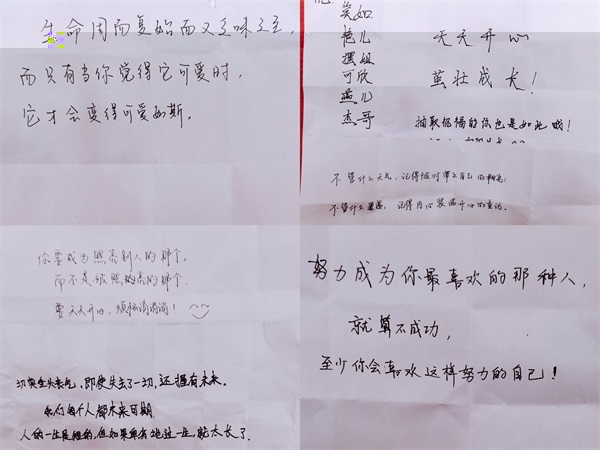 生命周而复始而又乏味之至，
而只有当你觉得它可爱时，
它才会变得可爱如斯。
英如
艳儿
摆姐
可欣
燕儿
杰哥
天天开心
茁壮成长！
抽取祝福的你也是如此哦！
不管什么天气，记得随时带上自己的阳光；
不管什么遭遇，记得内心装满开心的童话。
你要成为照亮别人的那个，
而不是被照亮的那个．
要天天开心，烦恼消消消！
切莫垂头丧气，即使失去了一切，还握有未来。
我们每个人都未来可期
人的一生是短的，但如果卑劣地过一生，就太长了．
努力成为你最喜欢的那种人，
就算不成功，
至少你会喜欢这样努力的自己！